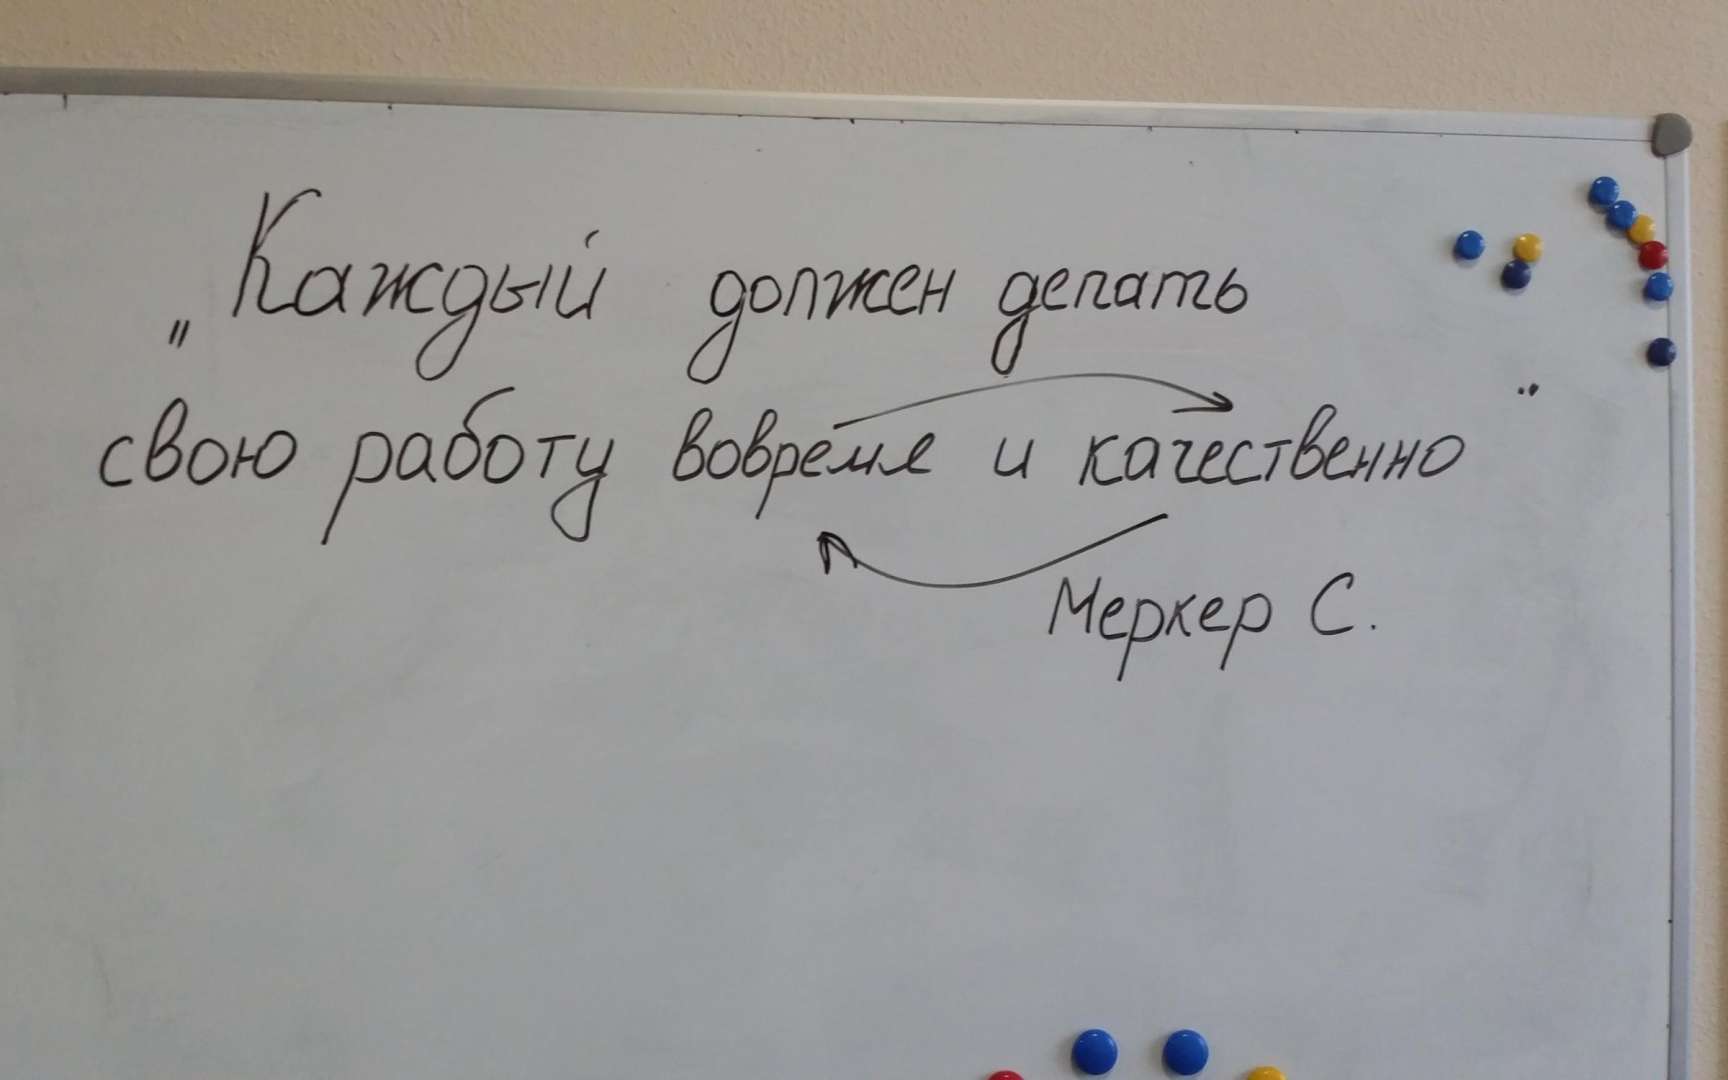 „Каждый должен делать
свою работу вовремя и качественно"
Меркер С.